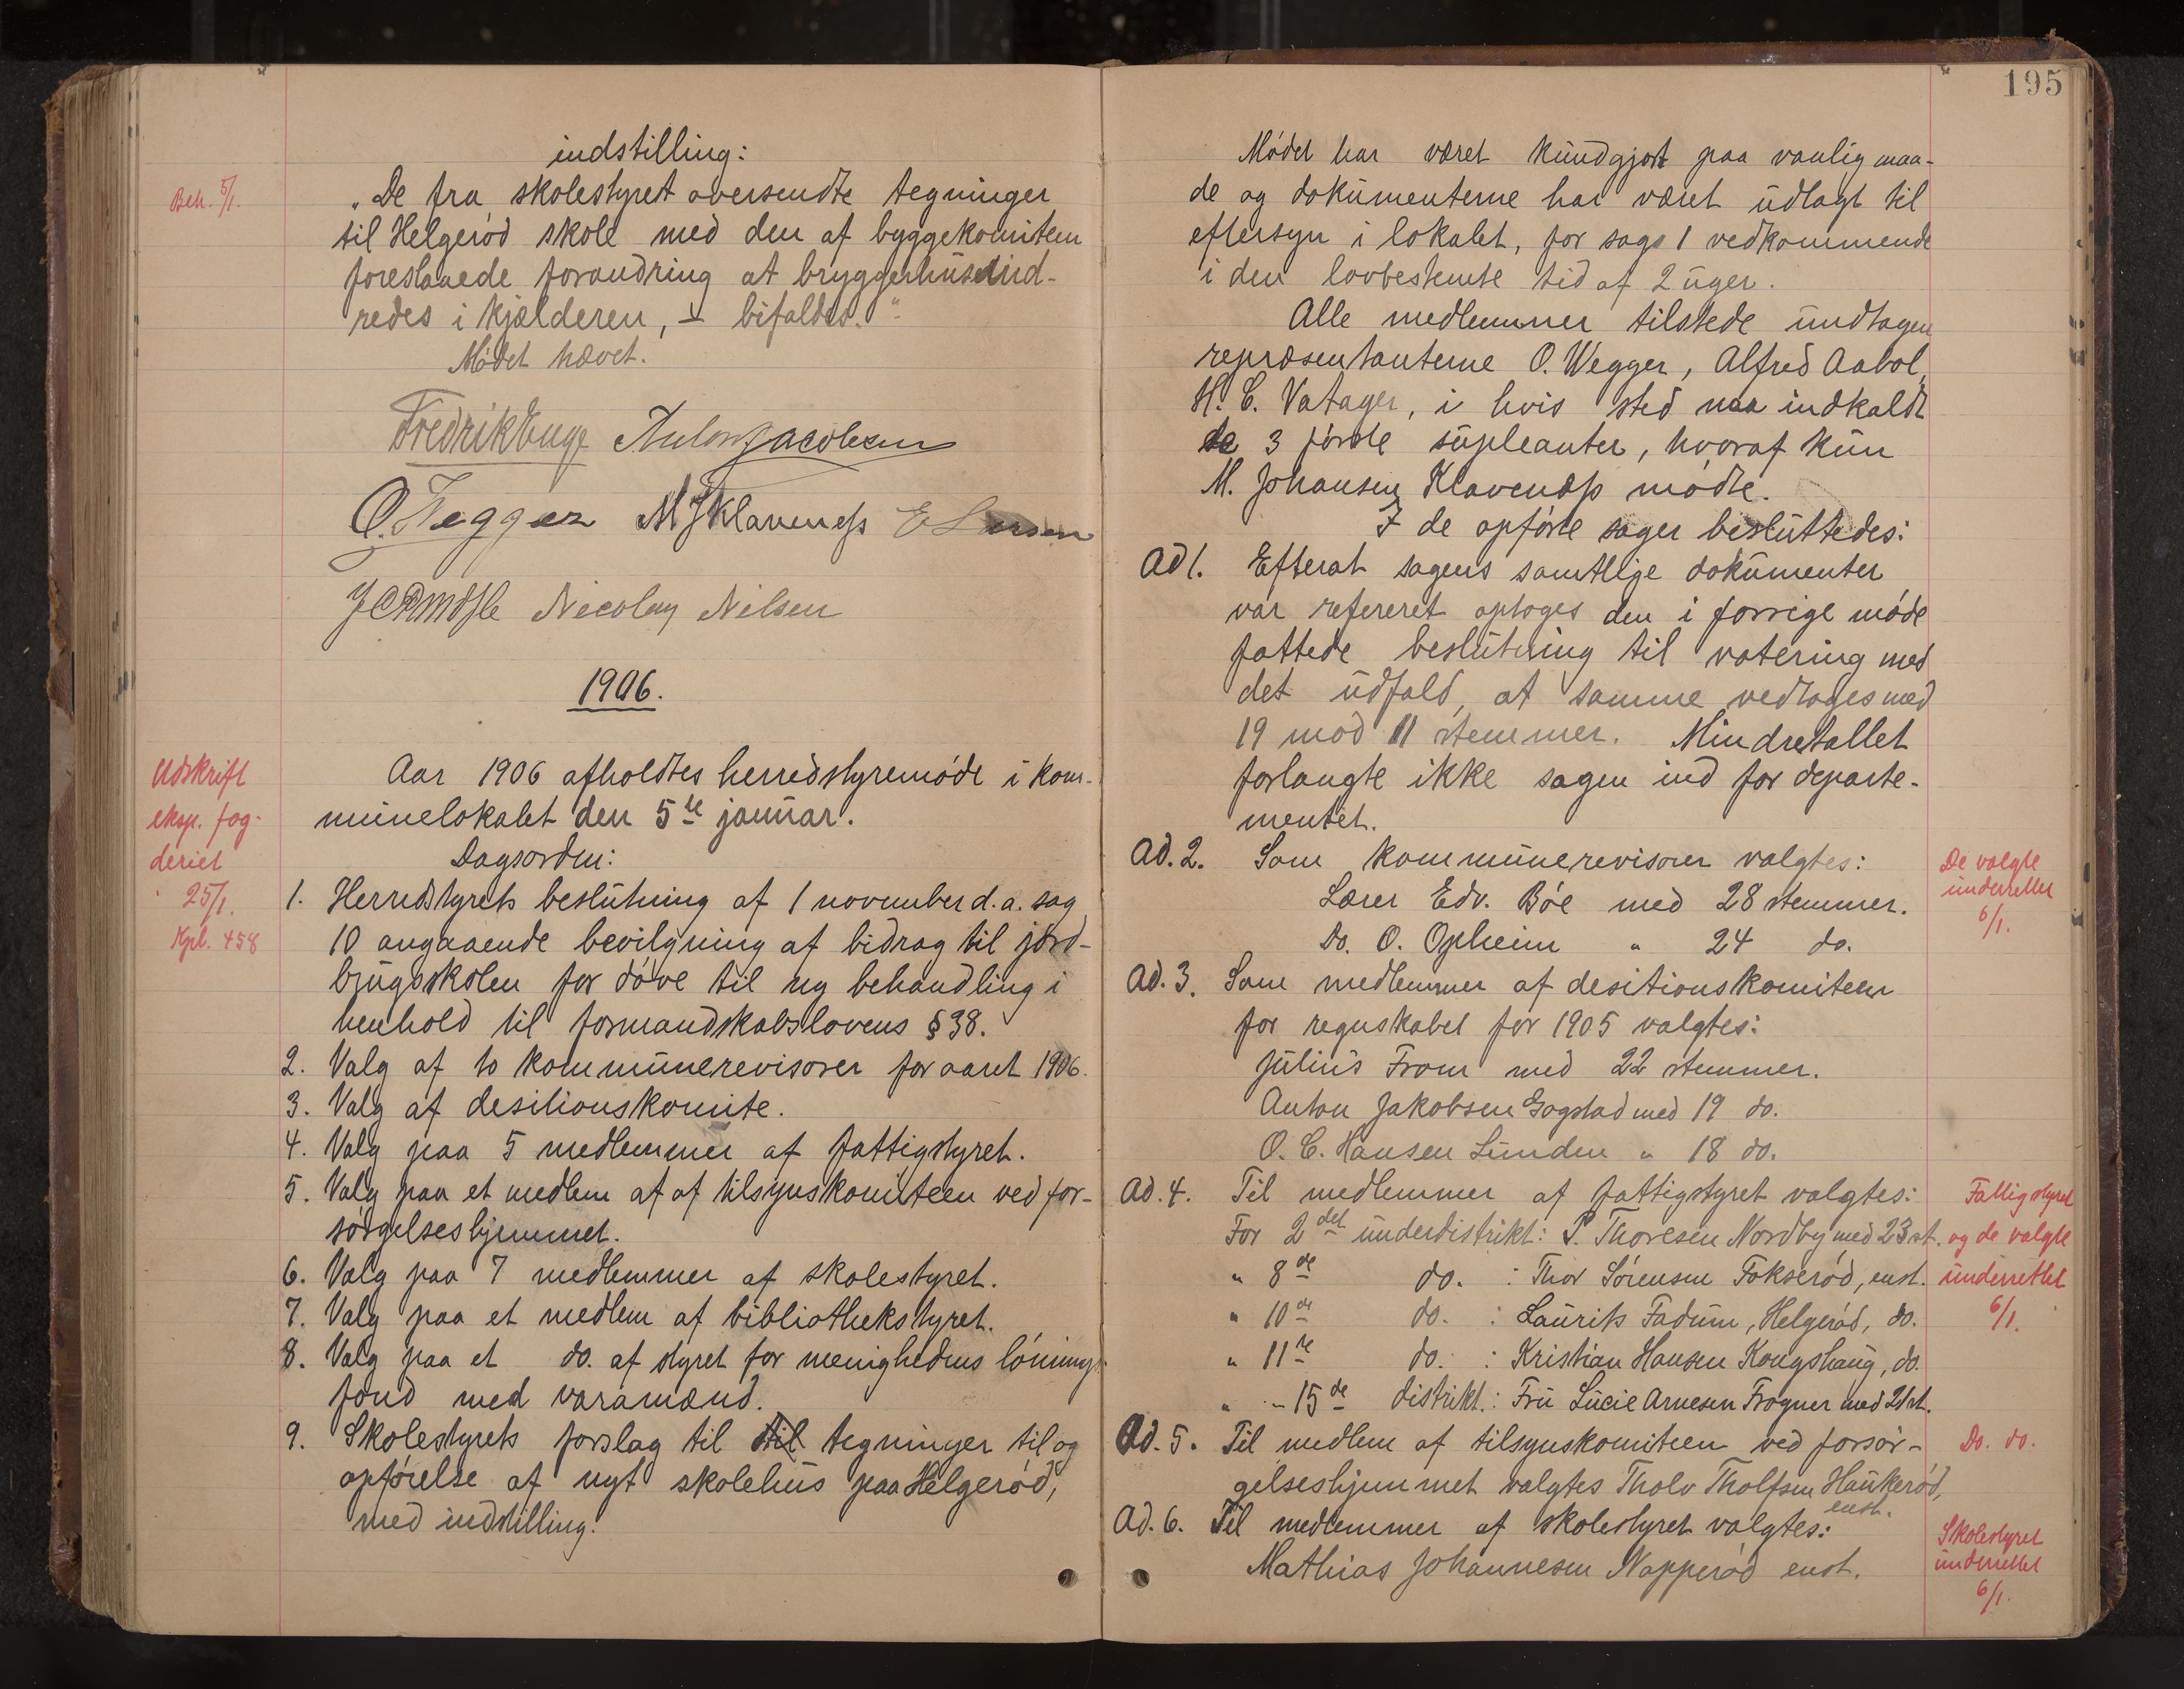 indstilling:
Beh. 5/1.
"De fra skolestyret oversendte tegninger
til Helgerød skole med den af byggekomiteen
foreslaaede forandring at bryggerhuset ind-
redes i kjælderen, – bifaldes."
Mødet hævet.
Fredrik Enge Anton Jacobsen
O. Wegger M J Klavenæss E Larsen
Nicolay Nilsen
1906.
Aar 1906 afholdtes herredstyremøde i kom-
munelokalet den 5te januar.
Dagsorden:
Udskrift
eksp. fog-
deriet
25/1.
Kpl. 458
1. Herredstyrets beslutning af 1 november d.a. sag
10 angaaende bevilgning af bidrag til jord-
brugsskolen for døve til ny behandling i
henhold til formandskabslovens § 38.
2. Valg af to kommunerevisorer for aaret 1906.
3. Valg af desitionskomite.
4. Valg paa 5 medlemmer af fattigstyret.
5. Valg paa et medlem af af tilsynskomiteen ved for-
sørgelseshjemmet.
6. Valg paa 7 medlemmer af skolestyret.
7. Valg paa et medlem af bibliothekstyret.
8. Valg paa et do. af styret for menighedens lønings-
fond med varamænd.
9. Skolestyrets forslag til til tegninger til og
opførelse af nyt skolehus paa Helgerød,
med indstilling.
195
Mødet har været kundgjort paa vanlig maa-
de og dokumenterne har været udlagt til
eftersyn i lokalet, for sags 1 vedkommende
i den lovbestemte tid af 2 uger.
Alle medlemmer tilstede undtagen
repræsentanterne O. Wegger, Alfred Aabol,
H. C. Vatager, i hvis sted var indkaldt
de 3 første supleanter, hvoraf kun
M. Johansen Klavenæss mødte.
I de opførte sager besluttedes:
Ad 1. Efterat sagens samtlige dokumenter
var refereret optoges den i forrige møde
fattede beslutning til votering med
det udfald, at samme vedtoges med
19 mod 11 stemmer. Mindretallet
forlangte ikke sagen ind for departe-
mentet.
Ad. 2. Som kommunerevisorer valgtes:
Lærer Edv. Bøe med 28 stemmer.
Do. O. Opheim " 24 do.
De valgte
underrettet
6/1.
Ad. 3. Som medlemmer af desitionskomiteen
for regnskabet for 1905 valgtes:
Julius From med 22 stemmer.
Anton Jakobsen Gogstad med 19 do.
O. C. Hansen Lunden " 18 do.
Ad. 4. Til medlemmer af fattigstyret valgtes:
For 2det underdistrikt: P. Thoresen Nordby med 23 st.
" 8de do. : Thor Sørensen Fokserød, enst.
" 10de do. : Laurits Fadum, Helgerød, do.
" 11te do. : Kristian Hansen Kongshaug, do.
" - 15de distrikt. : Fru Lucie Arnesen Frogner med 21 st.
Fattigstyret
og de valgte
underrettet
6/1.
Ad. 5. Til medlem af tilsynskomiteen ved forsør-
gelseshjemmet valgtes Tholv Tholfsen Haukerød,
enst.
Do. do.
Ad. 6. Til medlemmer af skolestyret valgtes:
Mathias Johannesen Napperød enst.
Skolestyret
underrettet
6/1.